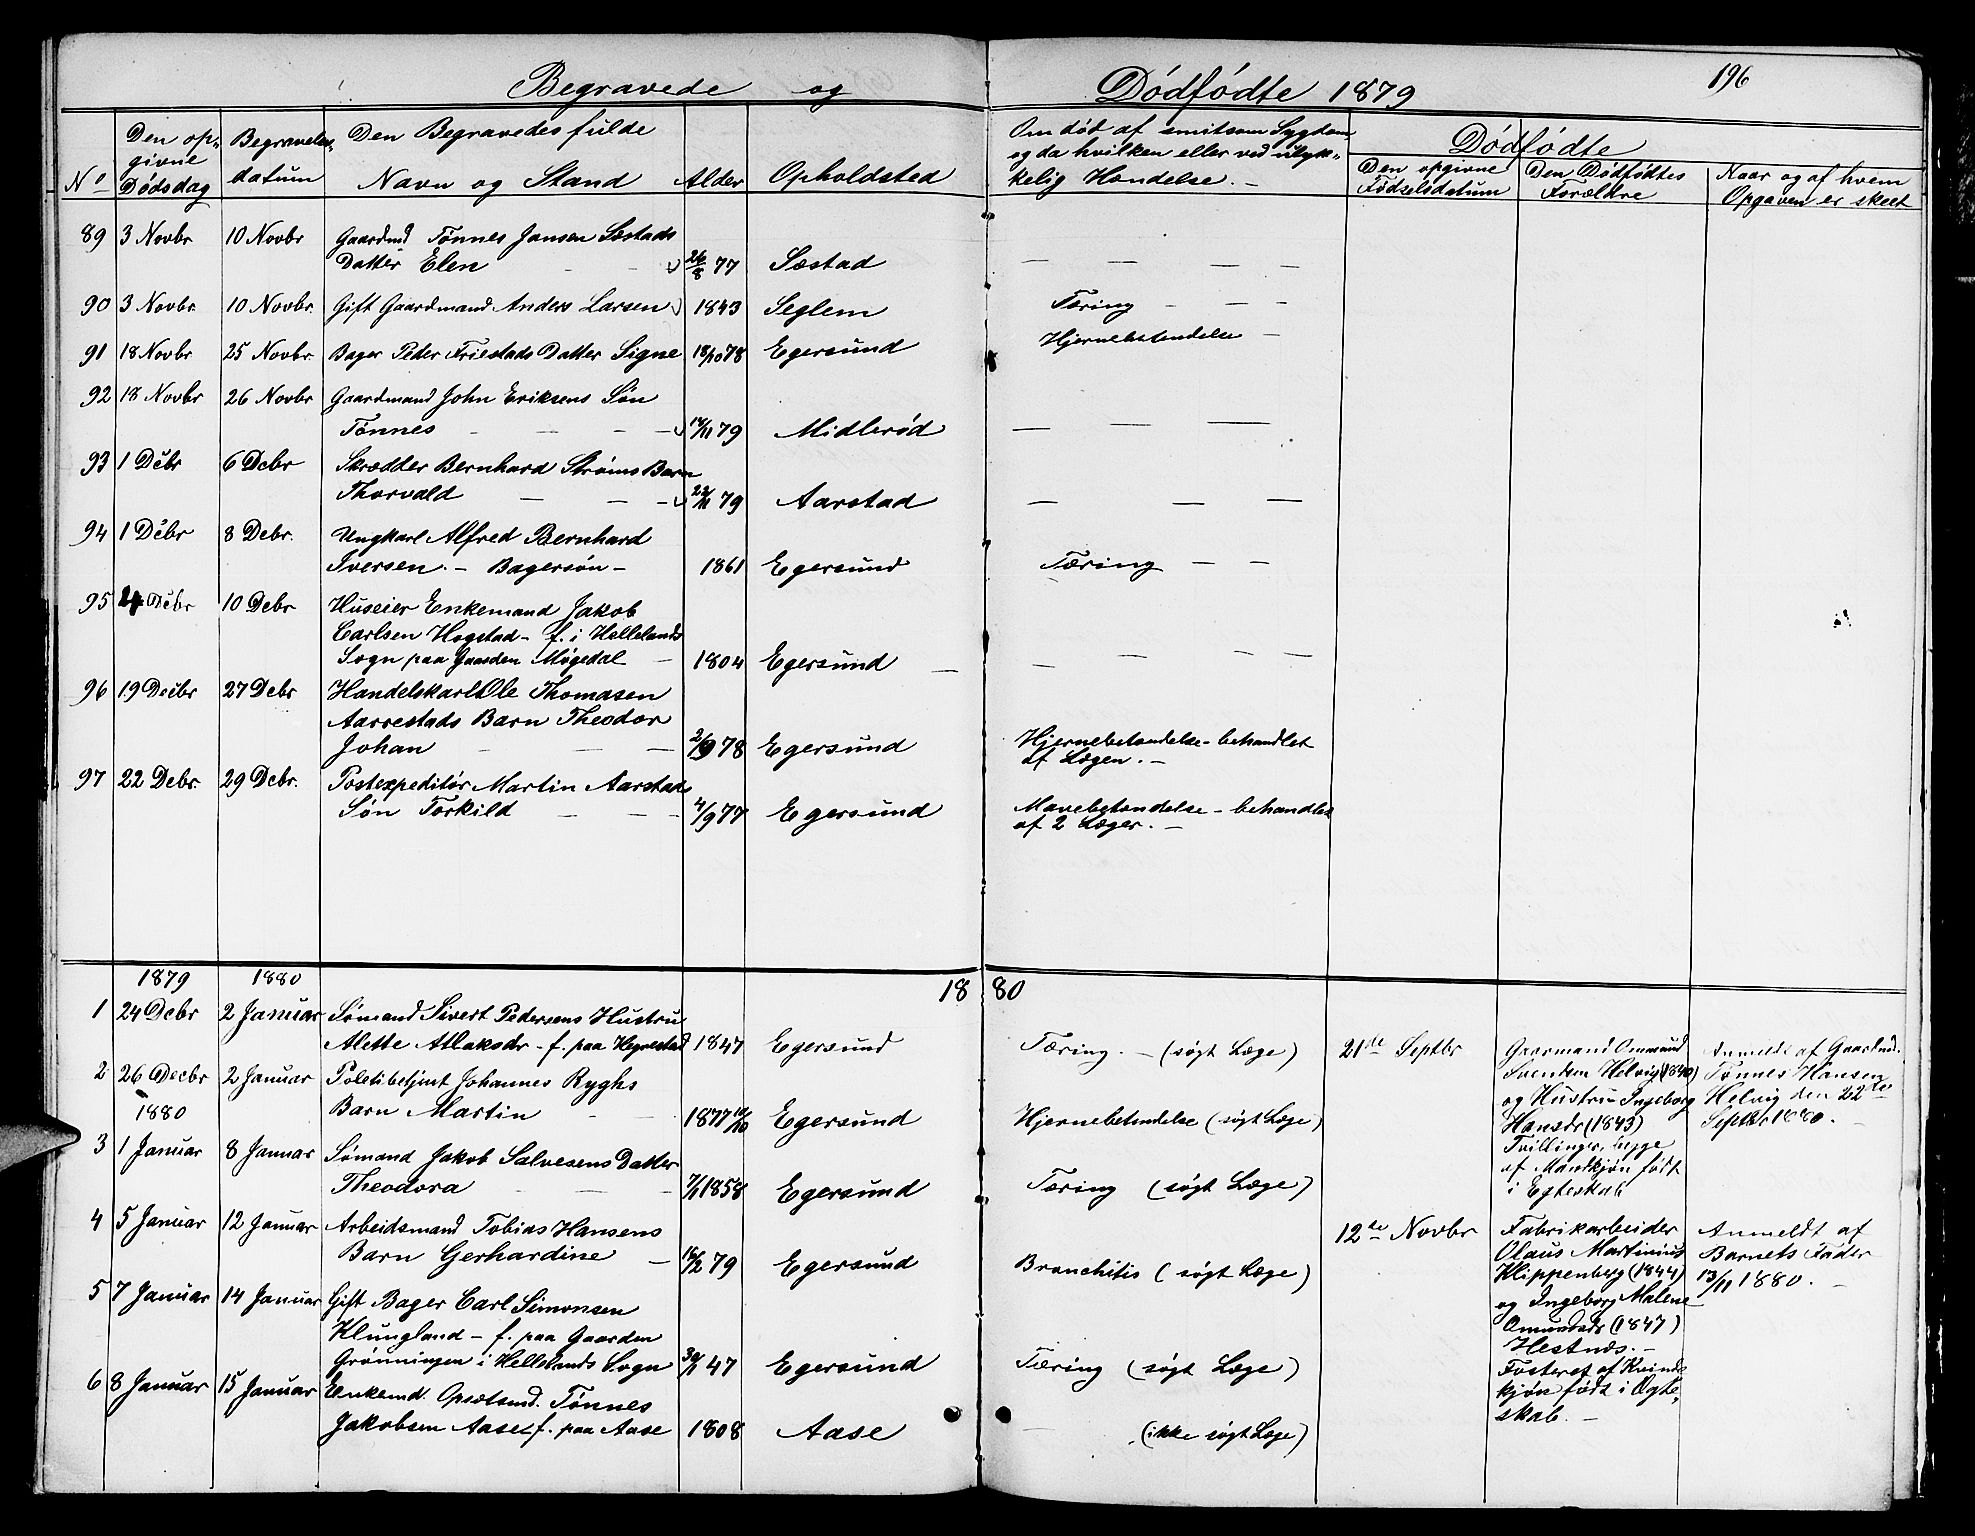 Begravede og Dødfødte 1879
196
No
Den op-
givne
Dødsdag
Begravelses-
datum
Den Begravedes fulde
Navn og Stand
Alder
Opholdsted
Om død af smitsom Sygdom
og da hvilken eller ved ulyk-
kelig Hændelse. -
Dødfødte
Den opgivne
Fødselsdatum
Den Dødfødtes
Forældre
Naar og af hvem
Opgaven er skeet
89 3 Novbr 10 Novbr Gaardmd Tønnes Jansen Sæstads
Datter Elen 26/8 77 Sæstad
90 3 Novbr. 10 Novbr. Gift Gaardmand Anders Larsen 1843 Seglem Tæring
91 18 Novbr 25 Novbr. Bager Peder Friestads Datter Signe 18/10 78 Egersund Hjernebetændelse -
92 18 Novbr 26 Novbr Gaardmand John Eriksens Søn
Tønnes 79 Midlerød
93 1 Dcbr 6 Dcbr Skrædder Bernhard Strøms Barn
Thorvald 79 Aarstad
94 1 Dcbr 8 Debr. Ungkarl Alfred Bernhard
Iversen. - Bagersøn - 1861 Egersund Tæring
95 Dcbr 10 Debr Huseier Enkemand Jakob
Carlsen Hogstad - f. i Hellelands
Sogn paa Gaarden Møgedal 1804 Egersund
96 19 Decbr 27 Debr Handelskarl Ole Thomasen
Aarrestads Barn Theodor
Johan 2/9 78 Egersund Hjernebetændelse - behandlet
af Lægen. -
97 22 Debr. 29 Debr. Postexpeditør Martin Aarstads
Søn Torkild 4/9 77 Egersund Mavebetændelse - behandlet
af 2 Læger. -
1879 1880
1880
1 24 Debr 2 Januar Sømand Sivert Pedersens Hustru
Alette Atlaksdr - f. paa Hegrestad 1847 Egersund Tæring. - (søgt Læge)
2 26 Decbr 2 Januar Politibetjent Johannes Ryghs
1880 Barn Martin 1877 Egersund Hjernebetændelse (søgt Læge)
3 1 Januar 8 Januar Sømand Jakob Salvesens Datter
Theodora 7/1 1858 Egersund Tæring (søgt Læge)
4 5 Januar 12 Januar Arbeidsmand Tobias Hansens
Barn Gerhardine 79 Egersund Bronchitis (søgt Læge)
5 7 Januar 14 Januar Gift Bager Carl Simonsen
Klungland - f. paa Gaarden
Grønningen i Hellelands Sogn 47 Egersund Tæring (søgt Læge)
6 8 Januar 15 Januar Enkemd. Opsætsmd. Tønnes
Jakobsen Aase f. paa Aase 1808 Aase (ikke søgt Læge)
21de Septbr
Gaarmand Ommund
Svendsen Helvig (1840)
og Hustru Ingeborg
Hansdr (1843)
Tvillinger, begge
af Mandkjøn født
i Egteskab
Anmeldt af Gaardmd.
Tønnes Hansen
Helvig den 22de
Septbr 1880. -
12te Novbr
Fabrikarbeider
Olaus Martinius
Klippenberg (1844)
og Ingeborg Malene
Omundsdr (1847)
Hestnæs. -
Fosteret af Kvinde
kjøn født i Ægte-
skab. -
Anmeldt af
Barnets Fader
13/11 1880. -